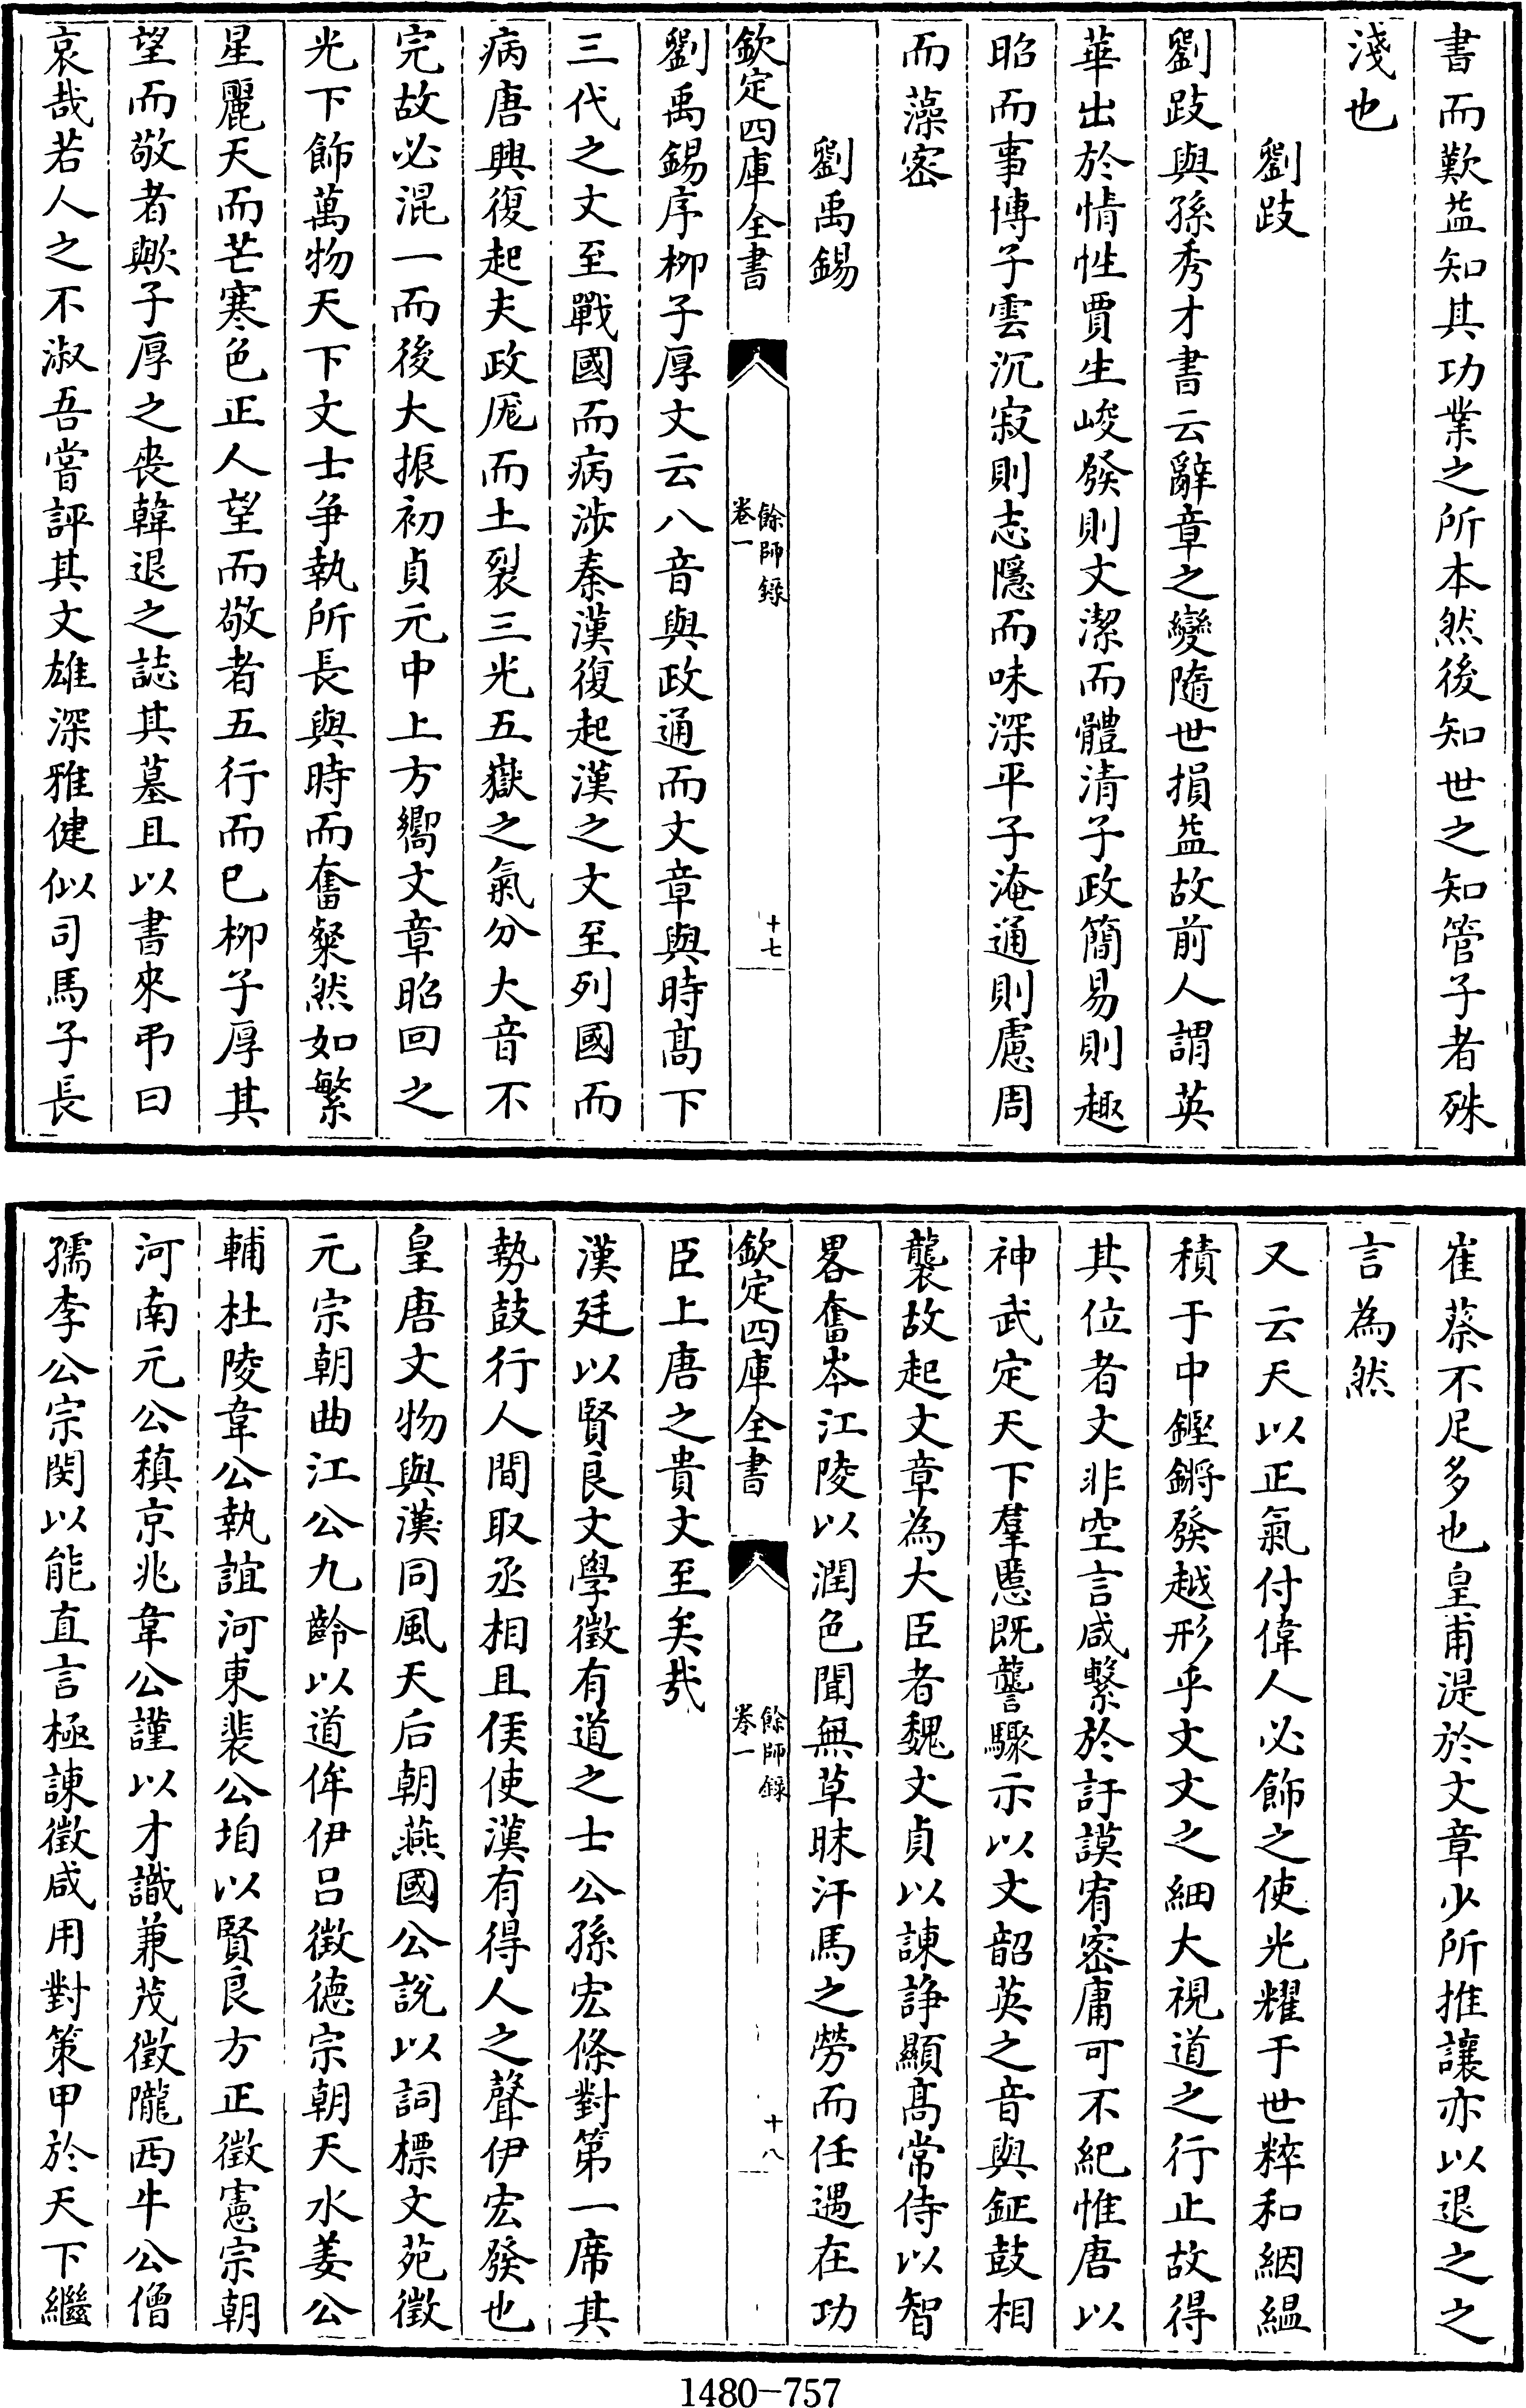 書而歎益知其功業之所本然後知世之知管子者殊
淺也
劉跂
劉跂與孫秀才書云辭章之變隨世損益故前人謂英
華出於情性賈生峻發則文潔而體清子政簡易則趣
昭而事博子雲沉寂則志隱而味深平子淹通則慮周
而藻密
劉禹錫
欽定四庫全書
餘師錄
卷一
十七
劉禹錫序柳子厚文云八音與政通而文章與時髙下
三代之文至戰國而病涉秦漢復起漢之文至列國而
病唐興復起夫政厖而土裂三光五嶽之氣分大音不
完故必混一而後大振初貞元中上方嚮文章昭回之
光下飾萬物天下文士爭執所長與時而奮粲然如繁
星麗天而芒寒色正人望而敬者五行而已柳子厚其
望而敬者歟子厚之喪韓退之誌其墓且以書來弔曰
哀哉若人之不淑吾嘗評其文雄深雅健似司馬子長
崔蔡不足多也皇甫湜於文章少所推讓亦以退之之
言為然
又云天以正氣付偉人必飾之使光耀于世粹和絪縕
積于中鏗鏘發越形乎文文之細大視道之行止故得
其位者文非空言咸繫於訏謨宥密庸可不紀惟唐以
神武定天下羣慝既讋驟示以文韶英之音與鉦鼓相
襲故起文章為大臣者魏文貞以諫諍顯髙常侍以智
畧奮岑江陵以潤色聞無草昧汗馬之勞而任遇在功
欽定四庫全書
餘師錄
卷一
十八
臣上唐之貴文至矣哉
漢廷以賢良文學徵有道之士公孫宏條對第一席其
勢鼓行人間取丞相且侯使漢有得人之聲伊宏發也
皇唐文物與漢同風天后朝燕國公說以詞標文苑徵
元宗朝曲江公九齡以道侔伊呂徵德宗朝天水姜公
輔杜陵韋公執誼河東裴公垍以賢良方正徵憲宗朝
河南元公稹京兆韋公謹以才識兼茂徵隴西牛公僧
孺李公宗閔以能直言極諫徵咸用對策甲於天下繼
1480-757